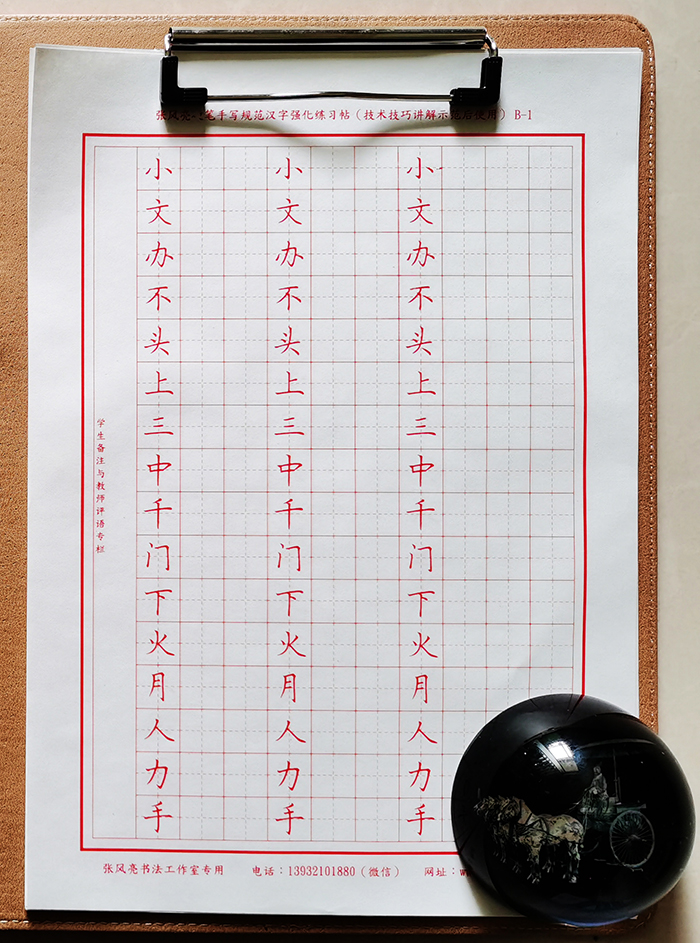 张风亮 笔手写规范汉字强化练习帖（技术技巧讲解示范后使用）B-1
小 小 小
文 文 文
办 办 办
不 不 不
头 头 头
上 上 上
三 三 三
中 中 中
千 千 千
门 门 门
下 下 下
火 火 火
月 月 月
人 人 人
力 力 力
手 手 手
学生备注与教师评语专栏
张风亮书法工作室专用 电话：13932101880（微信） 网址：w